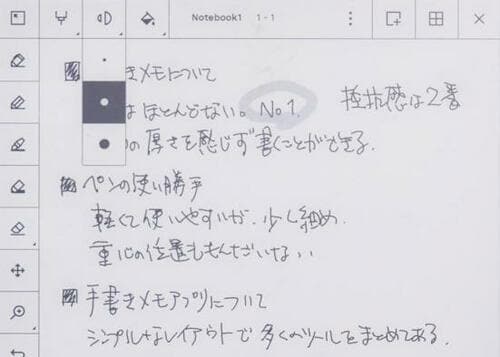 Notebook1 1-1
きメモについて
は ほとんどない。No1. 抵抗感は2番
の厚さを感じず書くことができる.
ペンの使い勝手
軽くて使いやすいが、少し細め.
重心の位置ももんだいない
手書きメモアプリについて
シンプルなレイアウトで多くのツールをまとめてある.